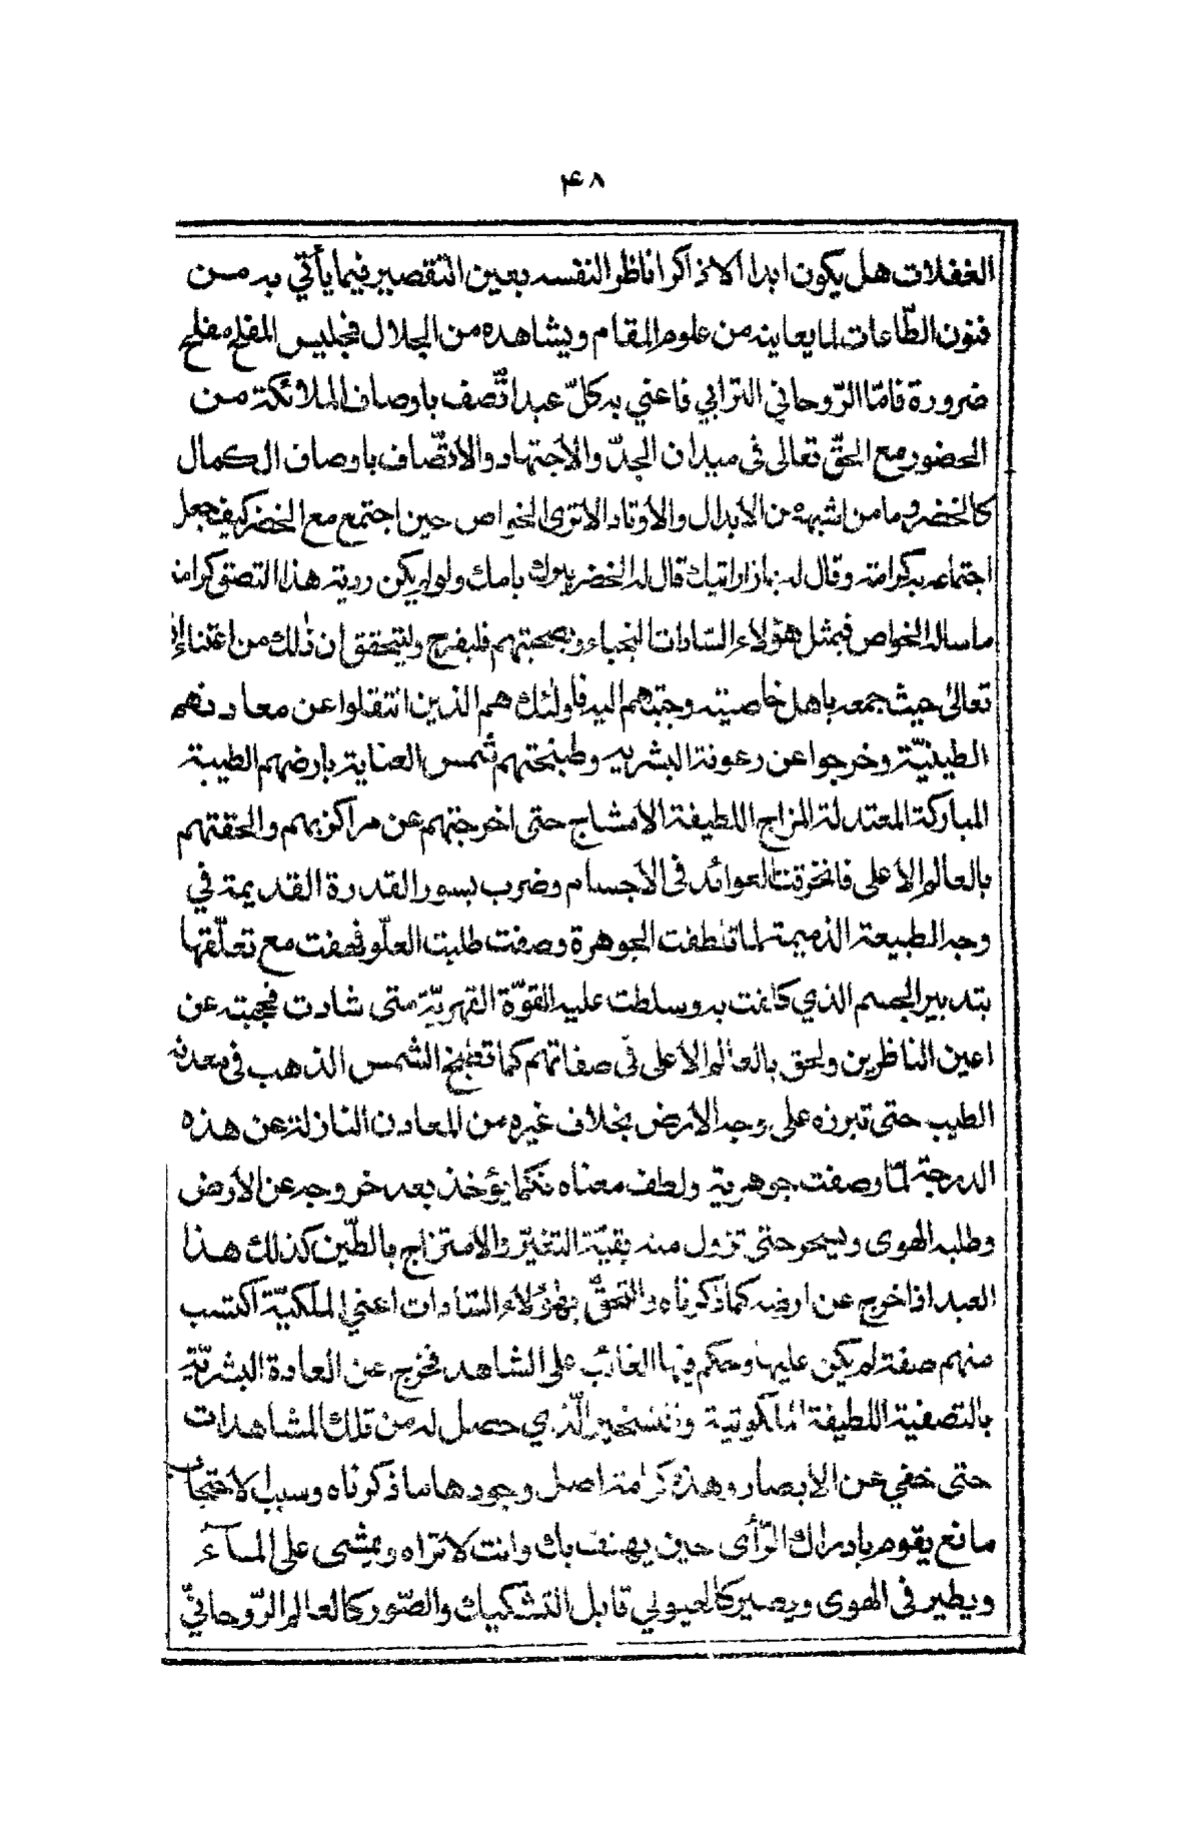 ۴۸
الغفلات هل يكون ابدا الا ذاكرا ناظر النفسه بعين التقصير فيما يأتي به من
فنون الطّاعات لما يعاينه من علوم المقام ويشاهده من الجلال فجليس المفلح مفلح
ضرورة فامّا الرّوحاني الترابي فاعني به كلّ عبد اتّصف باوصاف الملائكة من
الحضور مع الحقّ تعالى فى ميدان الجدّ والأجتهاد والأتّصاف باوصاف الكمال
كالخضر وما من اشبهه من الأبدال والأوتاد الا ترى الخواص حين اجتمع مع الخضر كيف جعل
اجتماعه به كرامة وقال له بماذا رايتك قال له الخضر ببرك بامك ولو لم يكن ردية هذا التصق كرامة
ما ساله الخواص فبمثل هؤلاء السّادات النجباء وبصحبتهم فليفرح وليتحقق ان ذلك من اعتناء
تعالى حيث جمعه باهل خاصيته وجتبهم اليه فاولئك هم الذين انتقلوا عن معادنهم
الطينيّة وخرجوا عن رعونة البشريه وطبختهم شمس العناية بارضهم الطيبة
المباركة المعتدلة المزاج اللطيفة الامشاج حتى اخرجتهم عن مراكزهم والحقتهم
بالعالم الأعلى فانخرقت العوائد فى الأجسام وضرب بسور القدرة القديمة في
وجه الطبيعة الذميمة لما تلطفت الجوهرة وصفت طلبت العلّو فحفت مع تعلّقها
بتدبير الجسم الذي كانت به وسلطت عليه القوّة القهريّة متى شادت فحجبته عن
اعين الناظرين ولحق بالعالم الأعلى فى صفاتهم كما تطبخ الشمس الذهب فى معدنه
الطيب حتى تبرزه على وجه الأرض بخلاف غيره من المعادن النازلة عن هذه
الدرجة لمّا وصفت جوهرية ولطف معناه نكما يؤخذ بعد خروجه عن الأرض
وطلبه الهوى وليحو حتى تزول منه بقيّة التغيّر والأمتزاج بالطّين كذلك هذا
العبد اذا خرج عن ارضه كما ذكرناه والتحقّ بهؤلاء السّادات اعني الملكيّة اكتسب
منهم صفة لم يكن عليها وحكم فيها الغائب على الشاهد فخرج عن العادة البشريّة
بالتصفية اللطيفة الملكوتية والتسخير الّذي حصل له من تلك المشاهدات
حتى خفي عن الأبصار وهذه كرامة اصل وجودها ما ذكرناه وسبب الاحتجاب
مانع يقوم بادراك الرّأى حين يهتف بك وانت لا تراه ويمشى على المآء
ويطير فى الهوى ويصير كالهيولي قابل التشكيك والصّور كالعالم الرّوحانيّ